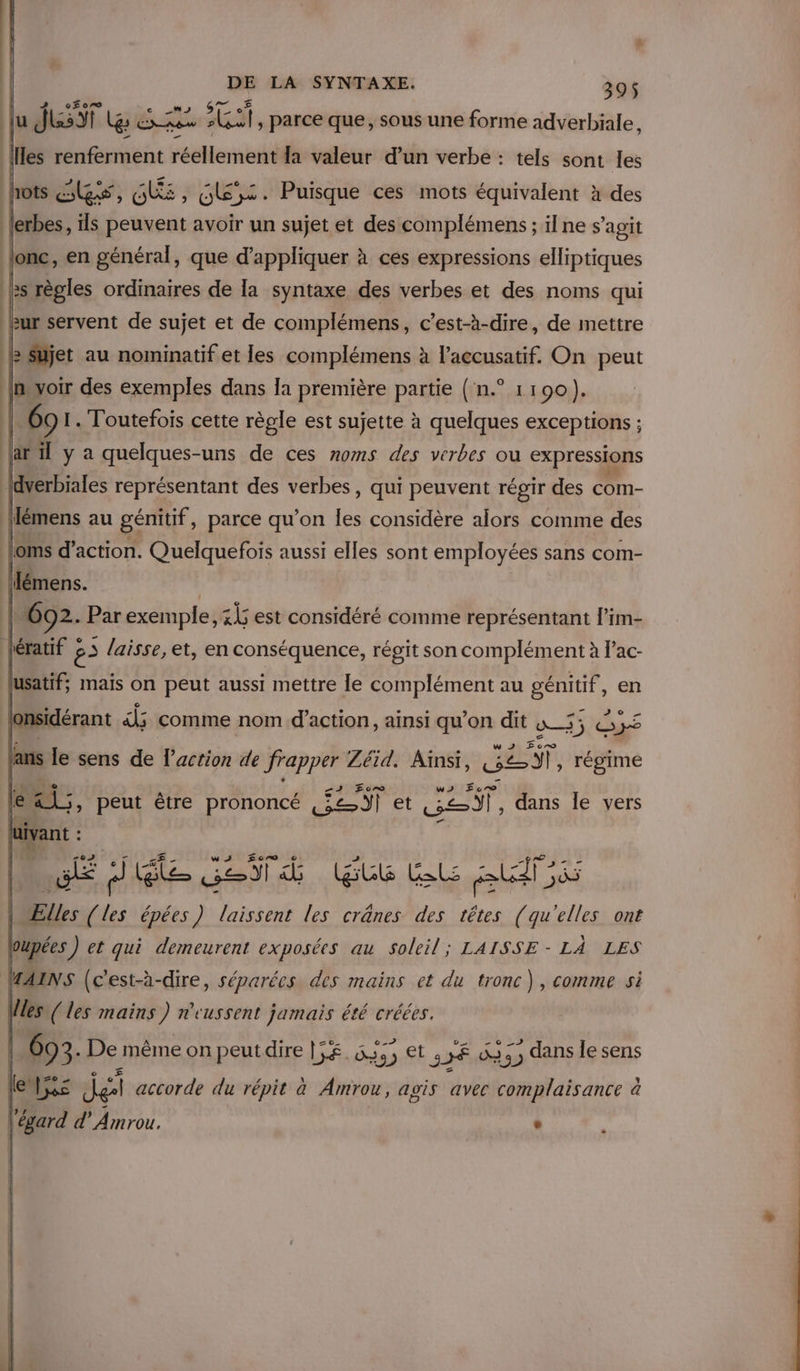 DE LA SYNTAXE. 395
أَسْمَاءٌ سُمِّيَتْ بِهَا ٱلْأَفْعَالُ, parce que, sous une forme adverbiale,
lles renferment réellement la valeur d'un verbe : tels sont les
nots هَيْهَاتَ, شَتَّانَ, سَرْعَانَ. Puisque ces mots équivalent à des
erbes, ils peuvent avoir un sujet et des complémens ; il ne s'agit
onc, en général, que d'appliquer à ces expressions elliptiques
es règles ordinaires de la syntaxe des verbes et des noms qui
eur servent de sujet et de complémens, c'est-à-dire, de mettre
e sujet au nominatif et les complémens à l'accusatif. On peut
n voir des exemples dans la première partie (n.° 1190).
691. Toutefois cette règle est sujette à quelques exceptions ;
ar il y a quelques-uns de ces noms des verbes ou expressions
dverbiales représentant des verbes, qui peuvent régir des com-
lémens au génitif, parce qu'on les considère alors comme des
oms d'action. Quelquefois aussi elles sont employées sans com-
lémens.
692. Par exemple, بَلْهَ est considéré comme représentant l'im-
ératif دَعْ laisse, et, en conséquence, régit son complément à l'ac-
usatif; mais on peut aussi mettre le complément au génitif, en
onsidérant بَلْهَ comme nom d'action, ainsi qu'on dit ضَرْبَ زَيْدٍ
ans le sens de l'action de frapper Zéid. Ainsi, ٱلْأَكُفِّ, régime
e بَلْهَ, peut être prononcé ٱلْأَكُفَّ et ٱلْأَكُفِّ, dans le vers
uivant :
تَذَرُ ٱلْجَمَاجِمَ ضَاحِيًا هَامَاتُهَا بَلْهَ ٱلْأَكُفِّ كَأَنَّهَا لَمْ تُخْلَقِ
Elles (les épées) laissent les crânes des têtes (qu'elles ont
oupées) et qui demeurent exposées au soleil ; LAISSE - LÀ LES
MAINS (c'est-à-dire, séparées des mains et du tronc), comme si
lles (les mains) n'eussent jamais été créées.
693. De même on peut dire رُوَيْدَ عَمْرًا et رُوَيْدَ عَمْرٍو dans le sens
e أَمْهِلْ عَمْرًا accorde du répit à Amrou, agis avec complaisance à
l'égard d'Amrou.